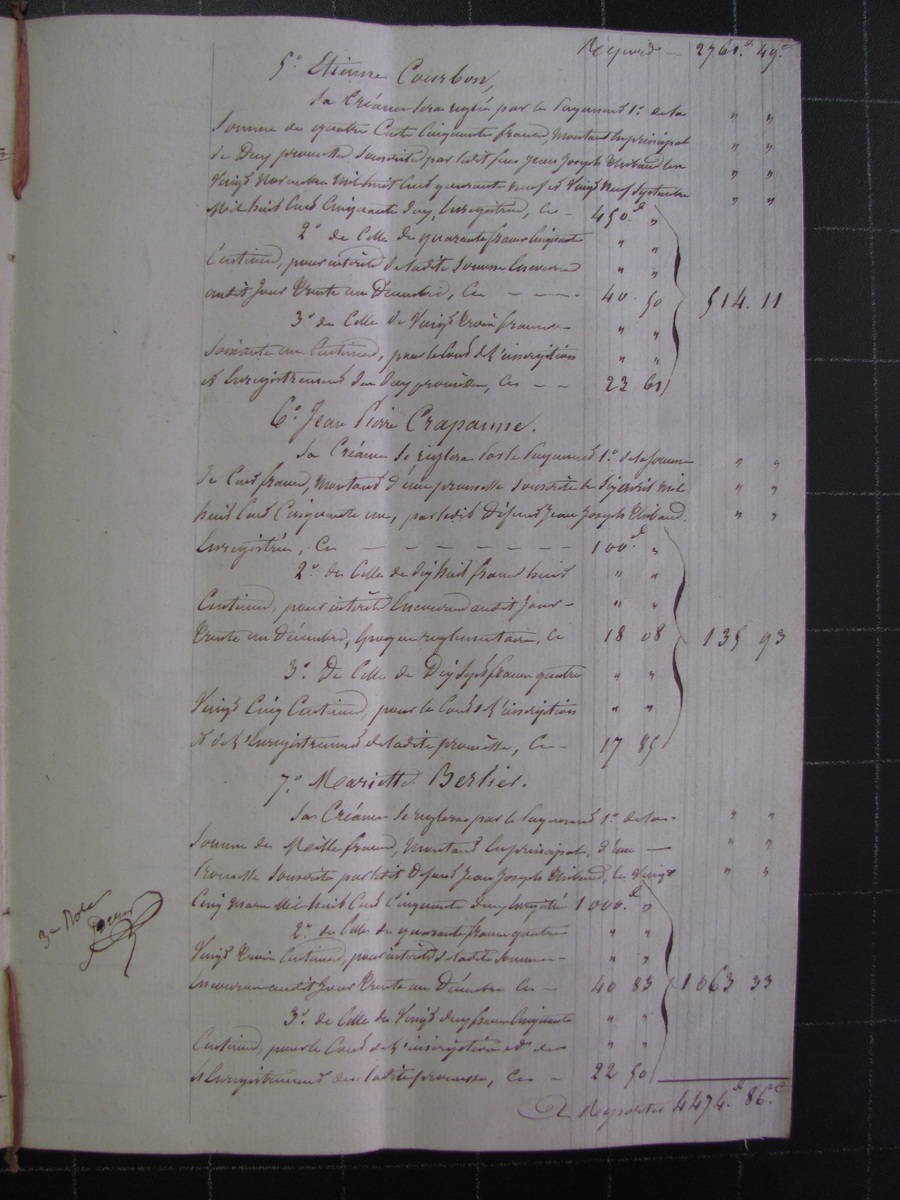 Report — 2761.d 49.c
5.° Etienne Courbon,
Sa Créance sera réglée par le payement 1.° de la " "
Somme de quatre Cents Cinquante francs, montant en principal " "
de deux promesses souscrites par ledit feu Jean Joseph les " "
Vingt Novembre mil huit Cent quarante neuf et Vingt neuf Septembre " "
Mil huit Cent Cinquante deux, Enregistrées, Ci - 450.d "
2.° de Celle de quarante francs Cinquante " "
Centimes, pour intérêts de ladite somme Encourus " "
audit Jour trente un Décembre, Ci - - - - 40 50 514. 11
3.° de Celle de Vingt trois francs " "
Soixante un Centimes, pour le Coût de l'inscription " "
et Enregistrement des deux promesses, Ci - - 23 61
6.° Jean Pierre Crapanne.
Sa Créance se réglera par le Payement 1.° de la somme " "
de Cent francs, montant d'une promesse souscrite le dix avril mil " "
huit Cent Cinquante un, par ledit Défunt Jean Joseph " "
Enregistrée, Ci - - - - - - - 100.d "
2.° de Celle de dix huit francs huit " "
Centimes, pour intérêts Encourus audit Jour - " "
trente un Décembre, époque réglementaire, Ci 18 08 135 93
3.° De Celle de Dix sept francs quatre " "
Vingt Cinq Centimes, pour le Coût de l'inscription " "
et de l'Enregistrement de ladite promesse, Ci - 17 85
7.° Mariette Berlier.
Sa Créance se réglera par le payement 1.° de la - " "
Somme de Mille francs, montant en principal, d'une — " "
Promesse souscrite par ledit Défunt Jean Joseph le Vingt " "
Cinq mars Mil huit Cent Cinquante deux, Enregistrée 1000.d "
2.° de Celle de quarante francs quatre " "
Vingt trois Centimes, pour intérêts de ladite somme - " "
Encourus audit Jour trente un Décembre Ci - 40 83 1063 33
3.° de Celle de Vingt deux francs Cinquante " "
Centimes, pour le Coût de l'inscription et de " "
l'Enregistrement de ladite promesse, Ci - 22 50
3e Role
A Reporter 4474.d 86.c